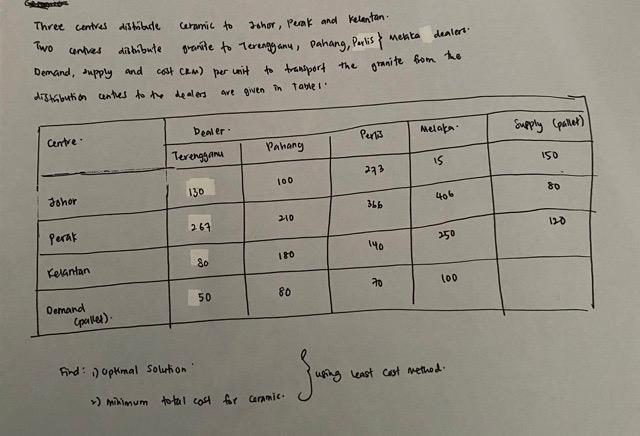 Three centres distribute ceramic to Johor, Perak and Kelantan.
Two centres distribute granite to Terengganu, Pahang, Perlis } Melaka dealers.
Demand, supply and cost (RM) per unit to transport the granite from the
distribution centres to the dealers are given in Table 1.
Centre. Dealer. Supply (pallet)
Terengganu Pahang Perlis Melaka.
Johor 130 100 273 15 150
Perak 267 210 366 406 80
Kelantan 80 180 140 250 120
Demand (pallet). 50 80 70 100
Find: 1) optimal solution.
2) minimum total cost for ceramic. } using least cost method.